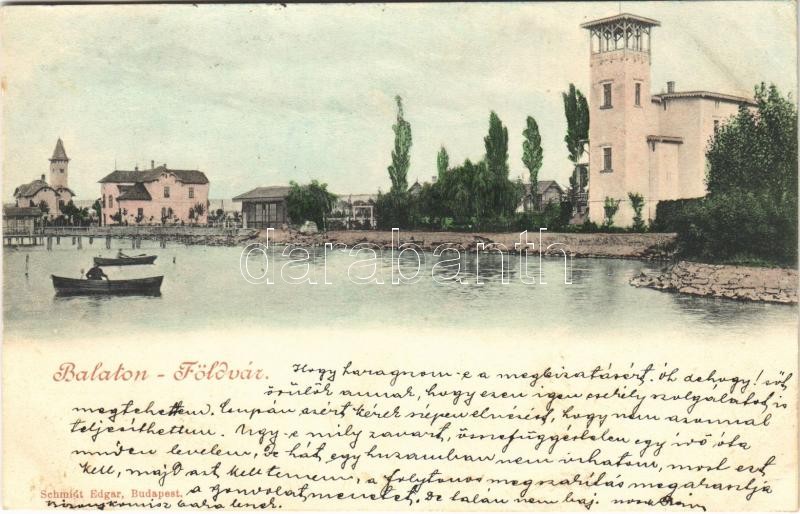 darabanth
Balaton - Földvár.
Hogy haragnom-e a megbizatásért. óh dehogy! sőt
örülök annak, hogy ezen igen csekély szolgálatot is
megtehettem. Csupán azért kérek szépen elnézést, hogy nem azonnal
teljesíthettem. Ugy-e mily zavart, összefüggéstelen egy idő óta
minden levelem, De hát egyhuzamban nem irhatom, most ezt
kell, majd azt kell tennem, a folytonos megszakitás megakasztja
Schmidt Edgar, Budapest.
a gondolatmenetet. De talán nem baj.
bizonykomisz baka lenek.